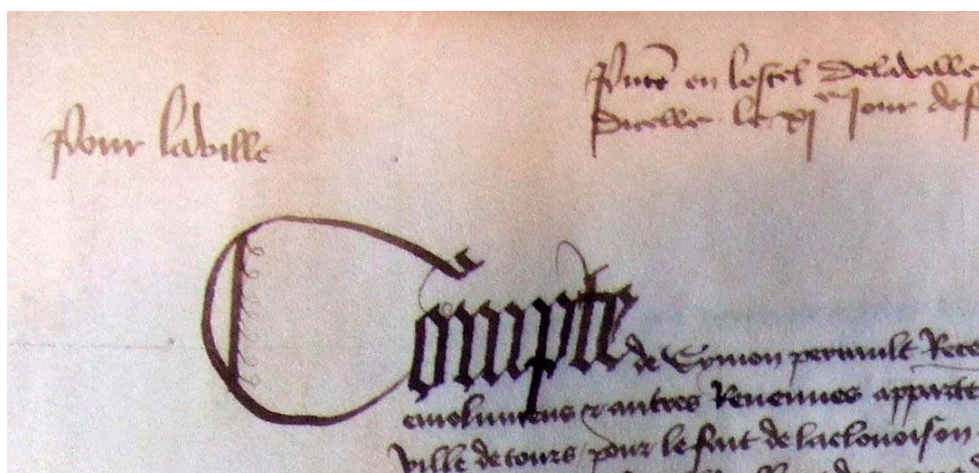 Pour laville
en lostel delaville
dicelle le xi^e jour de
Compte de Symon perrault Rece
emolumens & autres Revenues apparte
ville de tours pour le fait de lacloueison